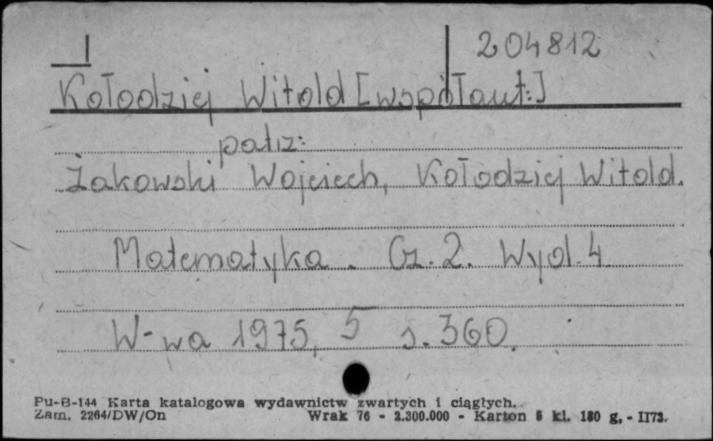 I 204812
Kołodziej Witold [współaut:]
patrz:
Żakowski Wojciech, Kołodziej Witold.
Matematyka. Cz. 2. Wyd. 4
W-wa 1975, 5 s. 360.
Pu-B-144 Karta katalogowa wydawnictw zwartych i ciągłych.
Zam. 2264/DW/On Wrak 76 - 2.300.000 - Karton 5 kl. 180 g. - II73.